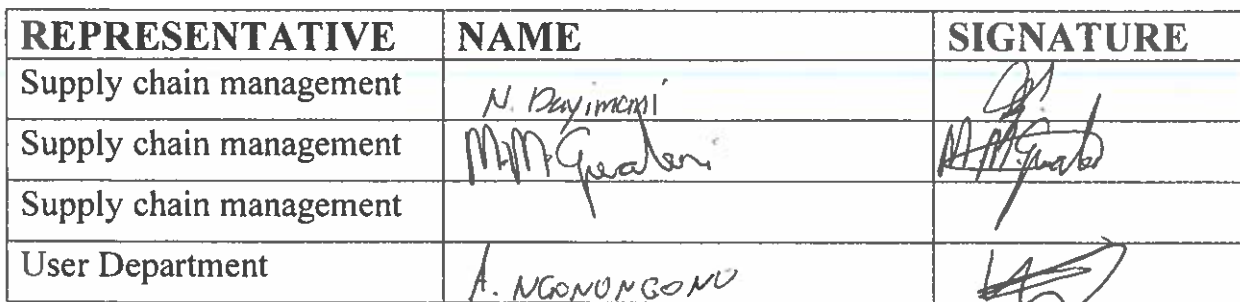 REPRESENTATIVE NAME SIGNATURE
Supply chain management N. Dayimani
Supply chain management M.M.
Supply chain management
User Department A. NGONONGONO